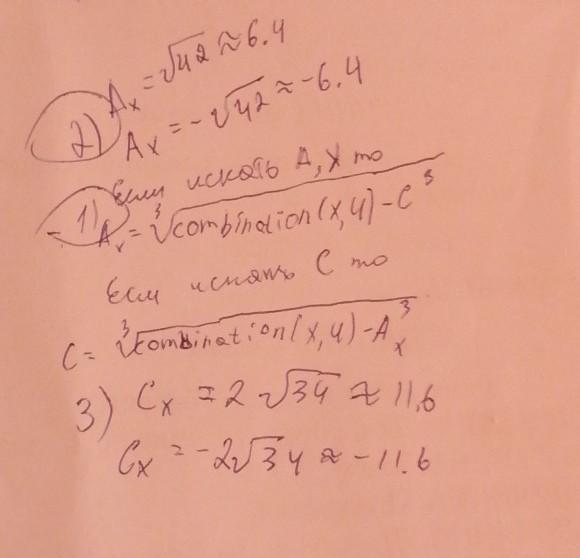 2) Aₓ = √42 ≈ 6.4
Aₓ = -√42 ≈ -6.4
Если искать A, X то
-1) Aₓ = ∛combination(x,4) - C³
Если искать C то
C = ∛combination(x,4) - Aₓ³
3) Cₓ = 2√34 ≈ 11,6
Cₓ = -2√34 ≈ -11.6